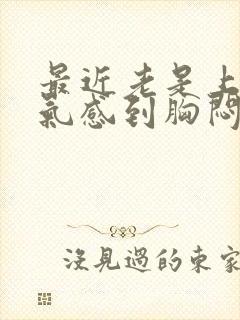 最近老是上
氣感到胸悶
沒見過的東家